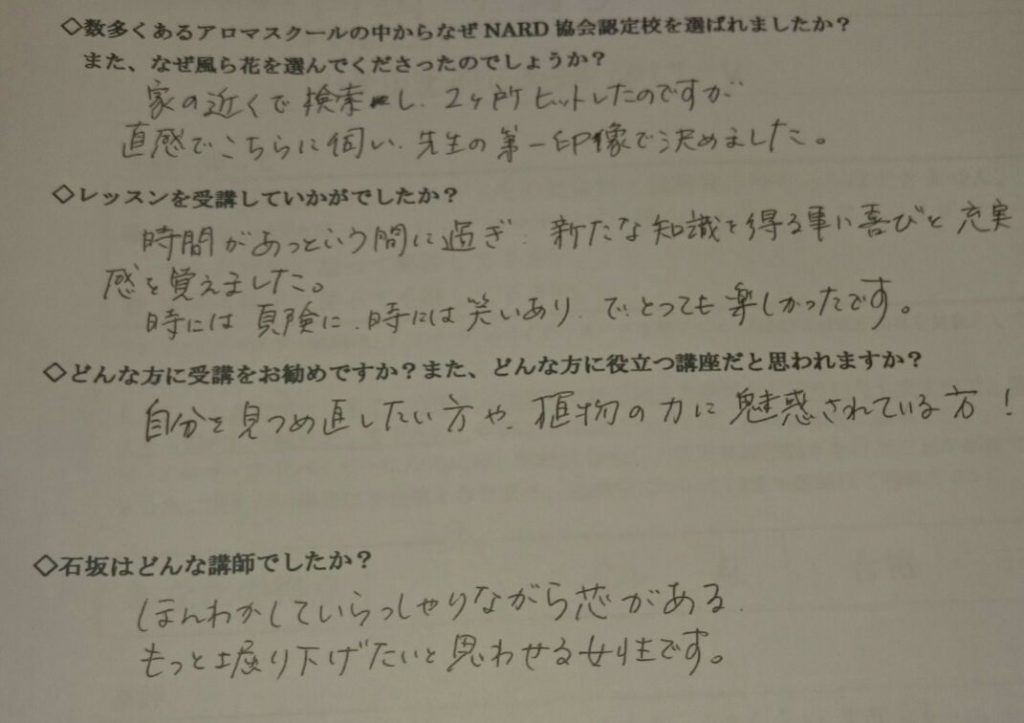 ◇数多くあるアロマスクールの中からなぜ NARD 協会認定校を選ばれましたか？
また、なぜ風ら花を選んでくださったのでしょうか？
家の近くで検索し、2ヶ所ヒットしたのですが
直感でこちらに伺い、先生の第一印像で決めました。
◇レッスンを受講していかがでしたか？
時間があっという間に過ぎ、新たな知識を得る事に喜びと充実
感を覚えました。
時には真険に、時には笑いあり、でとっても楽しかったです。
◇どんな方に受講をお勧めですか？また、どんな方に役立つ講座だと思われますか？
自分を見つめ直したい方や、植物の力に魅惑されている方！
◇石坂はどんな講師でしたか？
ほんわかしていらっしゃりながら芯がある、
もっと堀り下げたいと思わせる女性です。